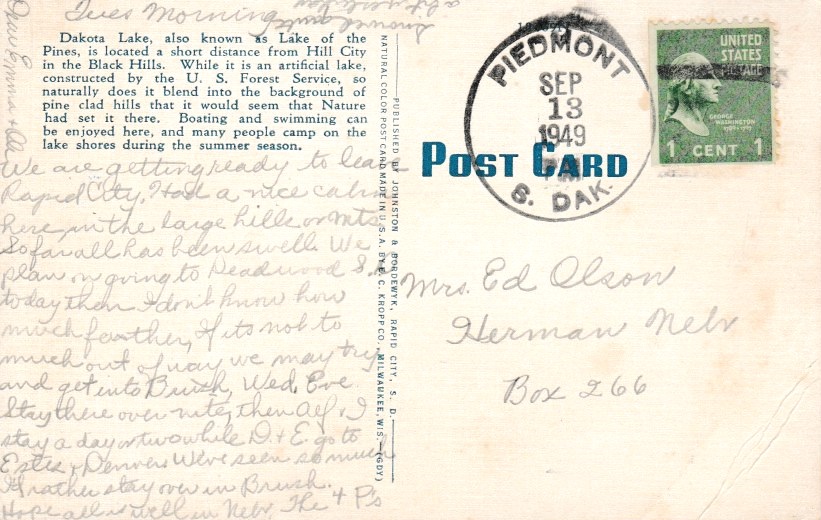 Tues Morning
Dakota Lake, also known as Lake of the
Pines, is located a short distance from Hill City
in the Black Hills. While it is an artificial lake,
constructed by the U. S. Forest Service, so
naturally does it blend into the background of
pine clad hills that it would seem that Nature
had set it there. Boating and swimming can
be enjoyed here, and many people camp on the
lake shores during the summer season.
Dear Emma &
We are getting ready to leave
Rapid City. Had a nice cabin
here in the large hills or mts.
So far all has been swell. We
plan on going to Deadwood S.
today then I don't know how
much farther, If its not to
much out of way we may try
and get into Brush, Wed. Eve.
Stay there over nite, then Alf & I
stay a day or two while D. & E. go to
Estes & Denver. We've seen so much
I'd rather stay over in Brush.
Hope all is well in Nebr. The 4 P's
PUBLISHED BY JOHNSTON & BORDEWYK, RAPID CITY, S. D.
NATURAL COLOR POST CARD MADE IN U. S. A. BY E. C. KROPP CO., MILWAUKEE, WIS.—(GDY)
PIEDMONT
SEP
13
1949
S. DAK.
POST CARD
UNITED
STATES
POSTAGE
GEORGE
WASHINGTON
1 CENT 1
Mrs. Ed Olson
Herman Nebr
Box 266